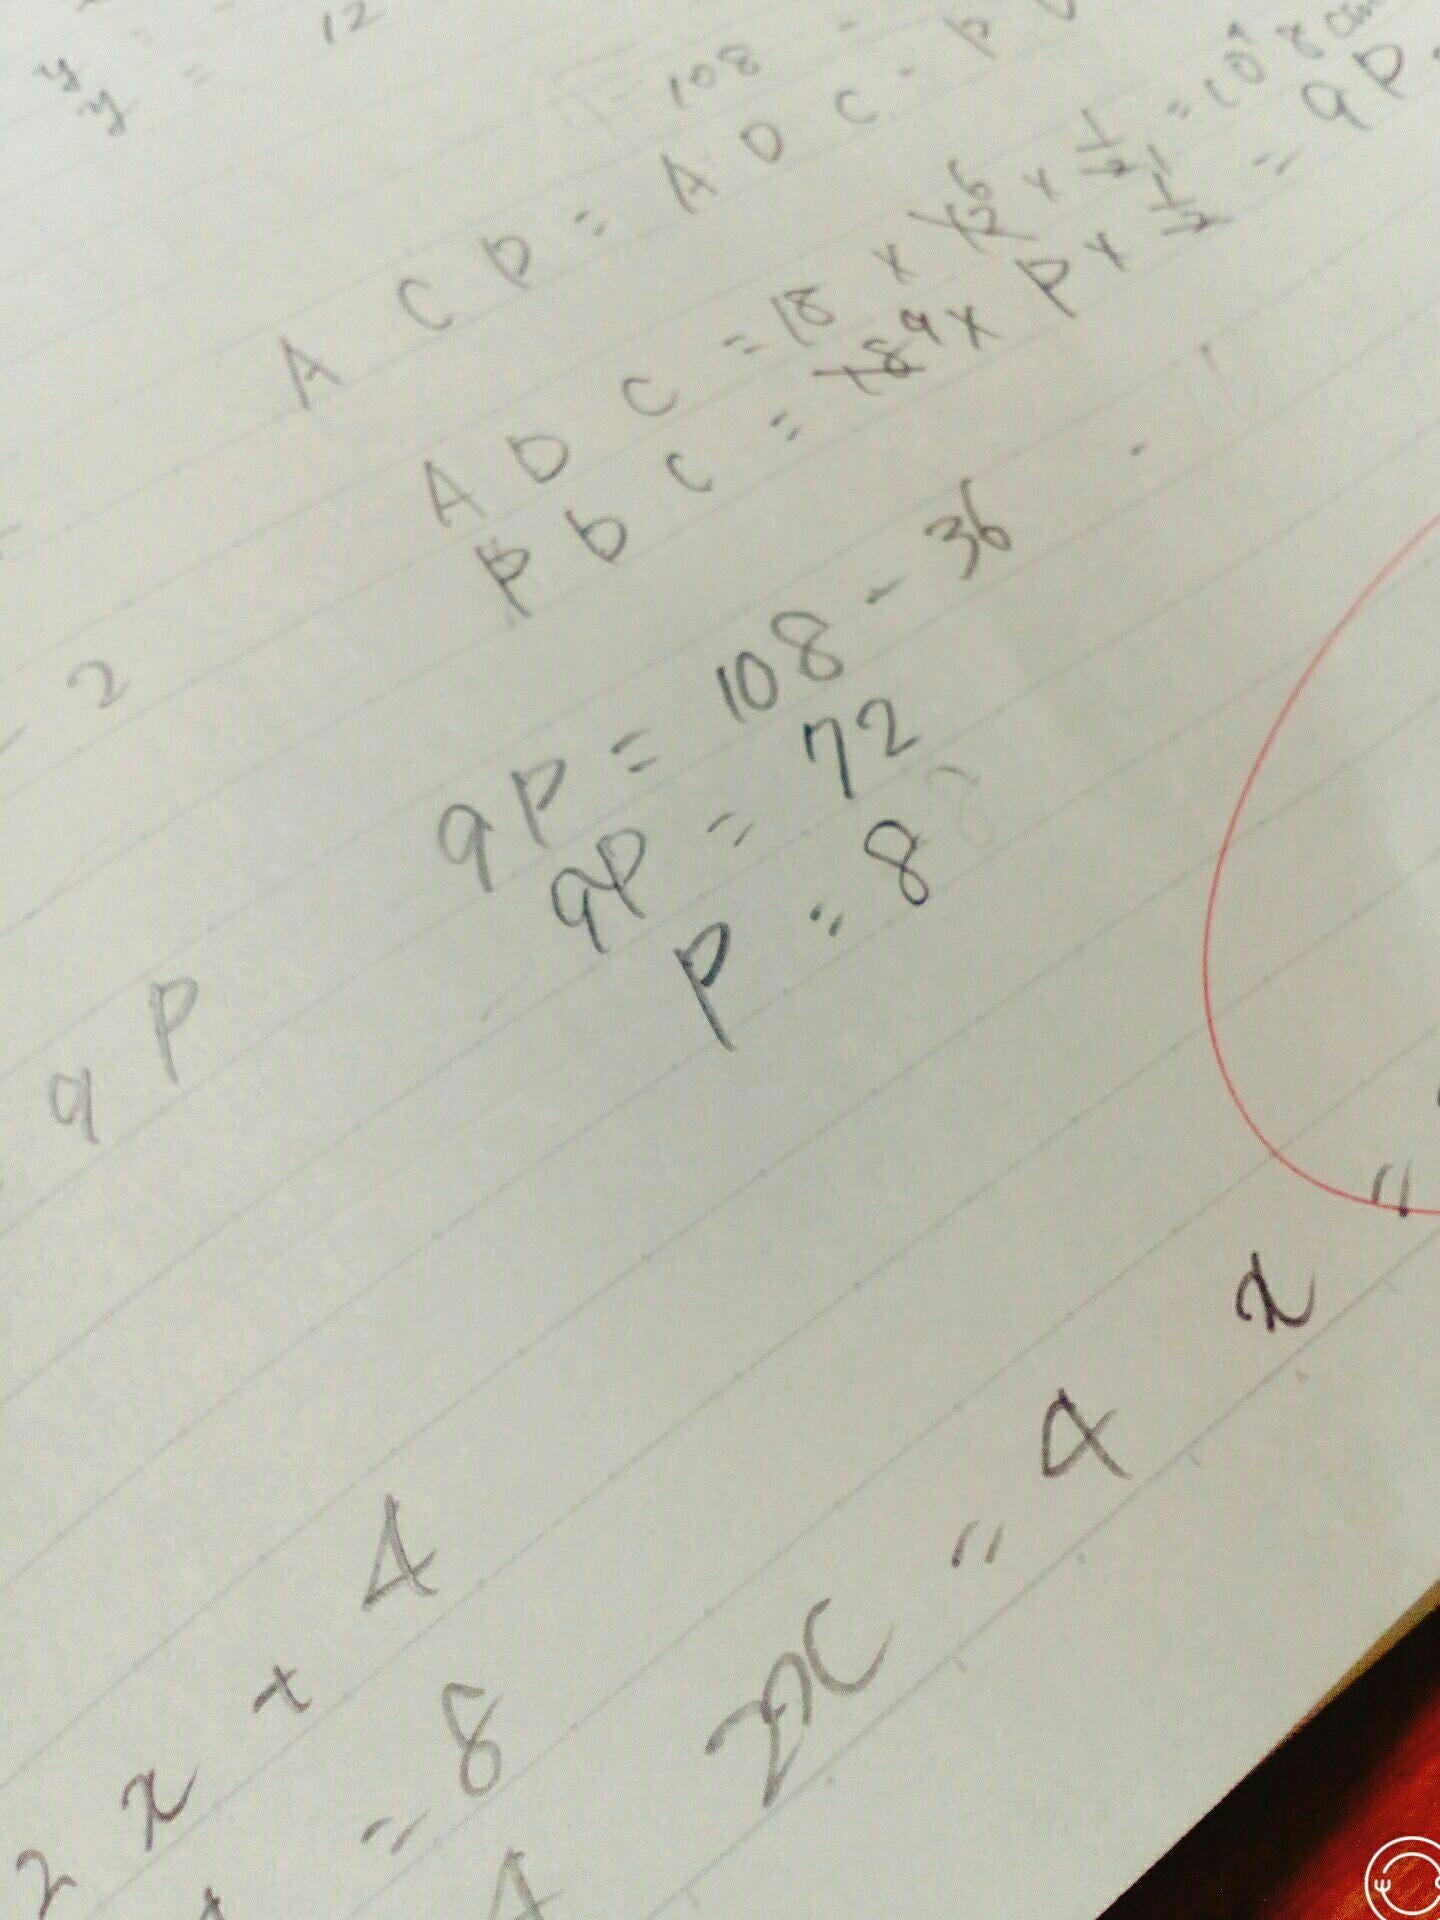 y =
y = 12
= 108 -
A C P = A D C - P
A D C = 18 × 12 6 × 1/2 = 108 cm
P D C = 18 9 × P × 1/2 = 9P
2
9P = 108 - 36
9P = 72
P = 8
9P
2x + 4
= 8
4
2x = 4
x =